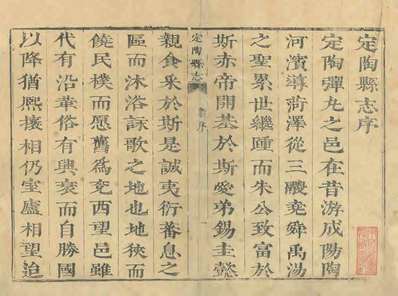 定陶縣志序
定陶彈丸之邑在昔游成陽陶
河濱導菏澤從三朡堯舜禹湯
之聖累世繼踵而朱公致富於
斯赤帝開基於斯愛弟錫圭懿
定陶縣志
序
親食采於斯是誠夷衍蕃息之
區而沐浴詠歌之地也地狹而
饒民樸而愿舊為兖西望邑雖
代有沿革俗有興衰而自勝國
以降猶熙攘相仍室廬相望迨